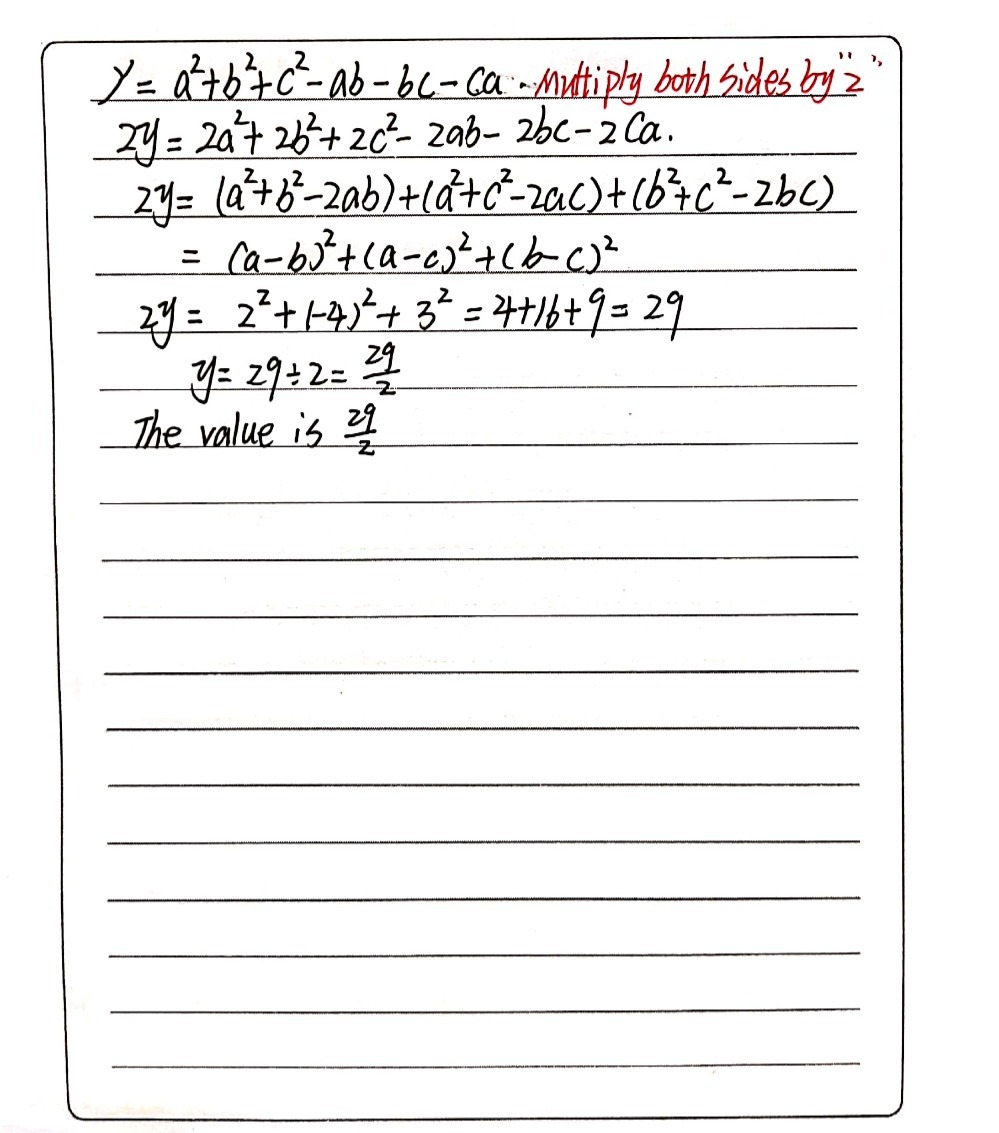 y = a²+b²+c²-ab-bc-ca ··Multiply both sides by "2"
2y = 2a²+2b²+2c²-2ab-2bc-2ca.
2y= (a²+b²-2ab)+(a²+c²-2ac)+(b²+c²-2bc)
= (a-b)²+(a-c)²+(b-c)²
2y = 2²+(-4)²+3² = 4+16+9 = 29
y = 29÷2 = 29/2
The value is 29/2